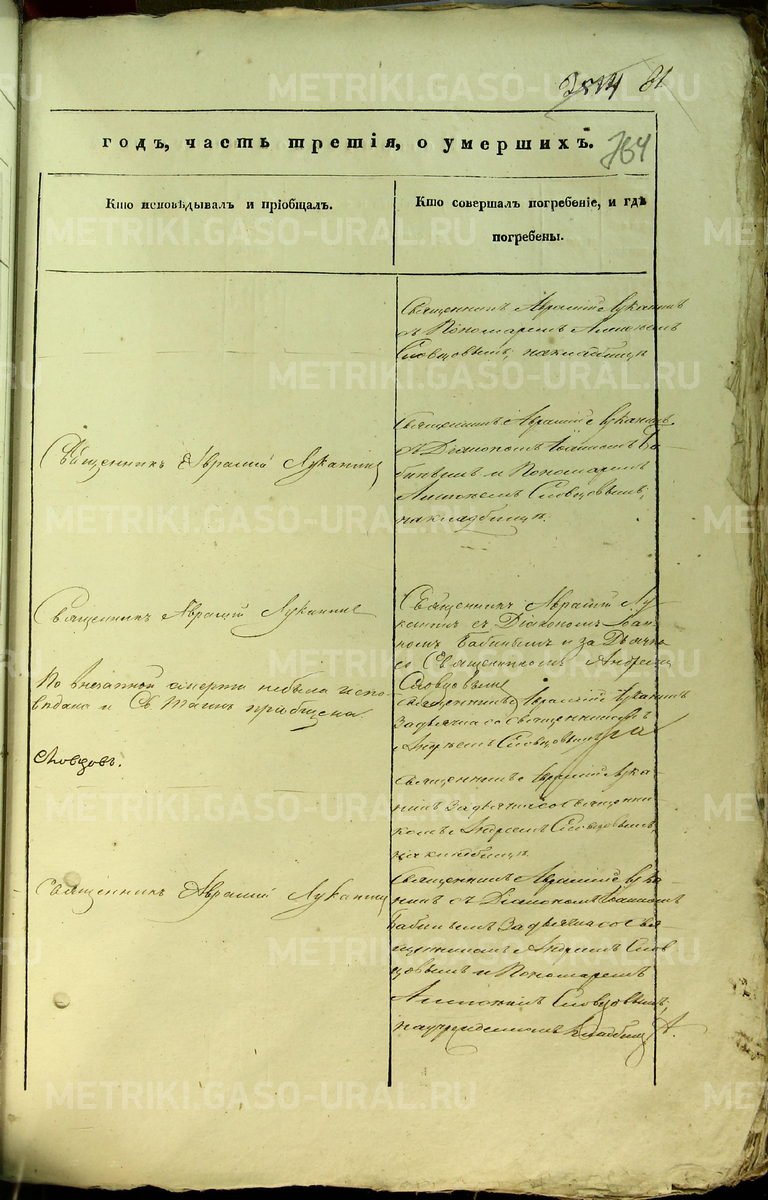 81
годъ, часть третія, о умершихъ.
764
Кто исповѣдывалъ и пріобщалъ.
Кто совершалъ погребеніе, и гдѣ
погребены.
Священникъ Аврамій Луканинъ
съ Пономаремъ
Словцовымъ, на кладбищѣ
Священникъ Аврамій Луканинъ
Священникъ Аврамій Луканинъ
съ Діакономъ Іоанномъ Ба-
бинымъ и Пономаремъ
Словцовымъ,
на кладбищѣ.
Священникъ Аврамій Луканинъ
Священникъ Аврамій Лу-
канинъ съ Діакономъ Іоан-
номъ Бабинымъ и за Дьячка
со Священникомъ Андреемъ
Словцовымъ
По внезапной смерти небыла испо-
вѣдана и Св. Таинъ приобщена
Священникъ Аврамій Луканинъ
за дьячка со священникомъ
Андреемъ Словцовымъ
Словцовъ.
Священникъ Аврамій Лука-
нинъ за дьячка со священни-
комъ Андреемъ Словцовымъ,
на кладбищѣ.
Священникъ Аврамій Луканинъ
Священникъ Аврамій Лука-
нинъ съ Діакономъ Іоанномъ
Бабинымъ за дьячка со свя-
щенникомъ Андреемъ Слов-
цовымъ и Пономаремъ
Словцовымъ,
на учрежденномъ кладбищѣ
METRIKI.GASO-URAL.RU